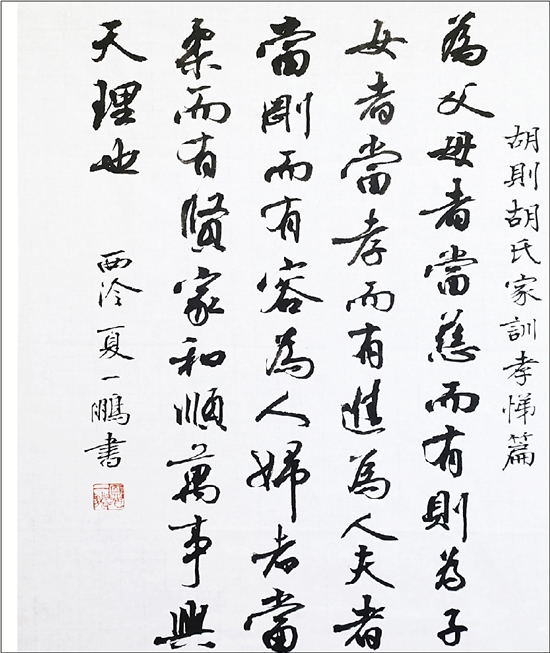 胡則胡氏家訓孝悌篇
為父母者當慈而有則為子
女者當孝而有進為人夫者
當剛而有容為人婦者當
柔而有賢家和順萬事興
天理也
西泠夏一鵬書